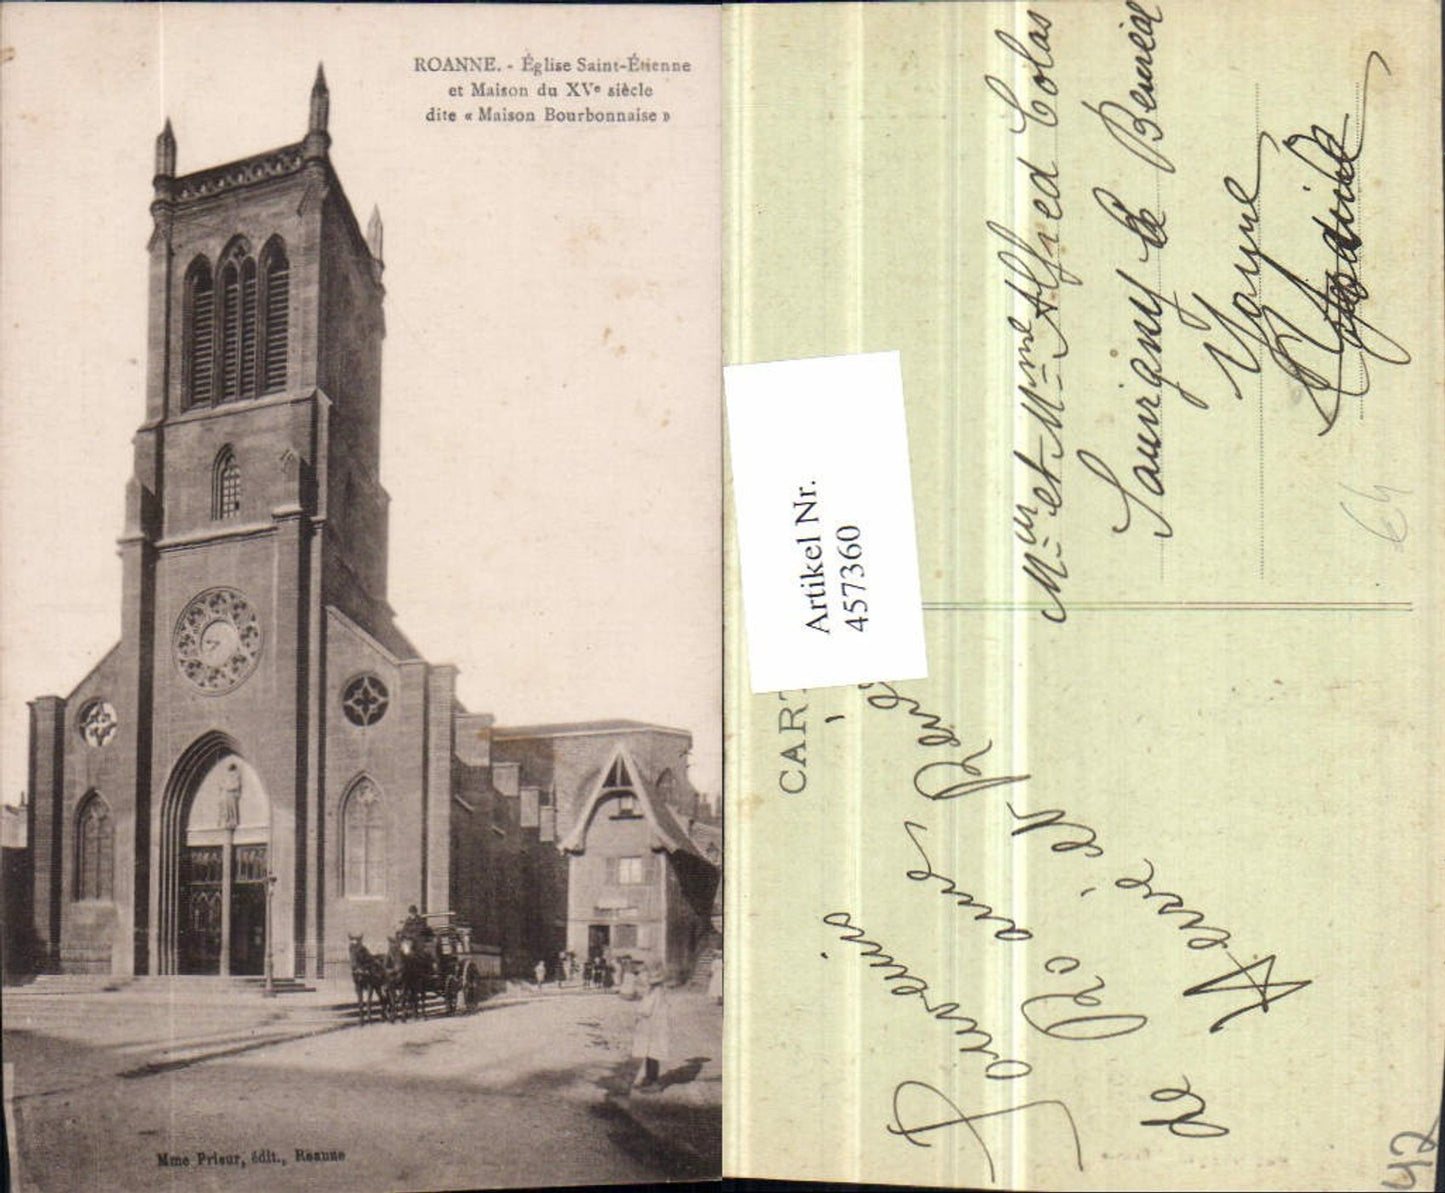 ROANNE. - Église Saint-Étienne
et Maison du XVe siècle
dite « Maison Bourbonnaise »
Mme Prieur, édit., Roanne
CART
Artikel Nr.
457360
Mur et Mme Alfred Colas
Sauvigny le Beuréal
Yonne
64
Souvenir
Roanne
de
Hervé et
42